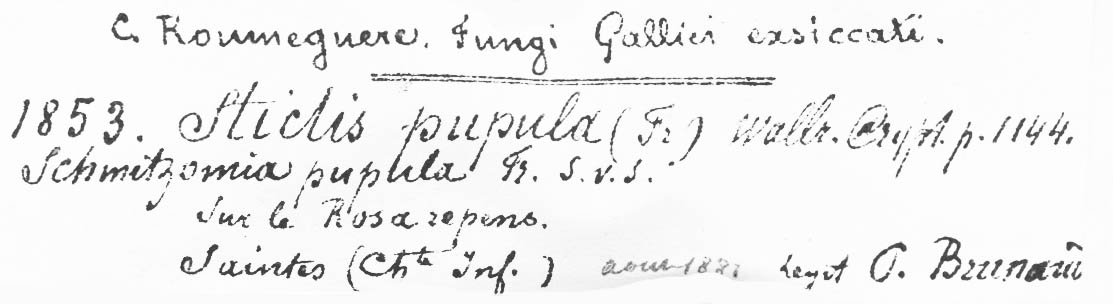 C. Roumeguere. Fungi Gallici exsiccati.
1853. Stictis pupula (Fr) Wallr. Crypt. p. 1144.
Schmitzomia pupula Fr. S.v.S.
Sur le Rosa repens.
Saintes (Chte Inf.) aout Legit P. Brunaud